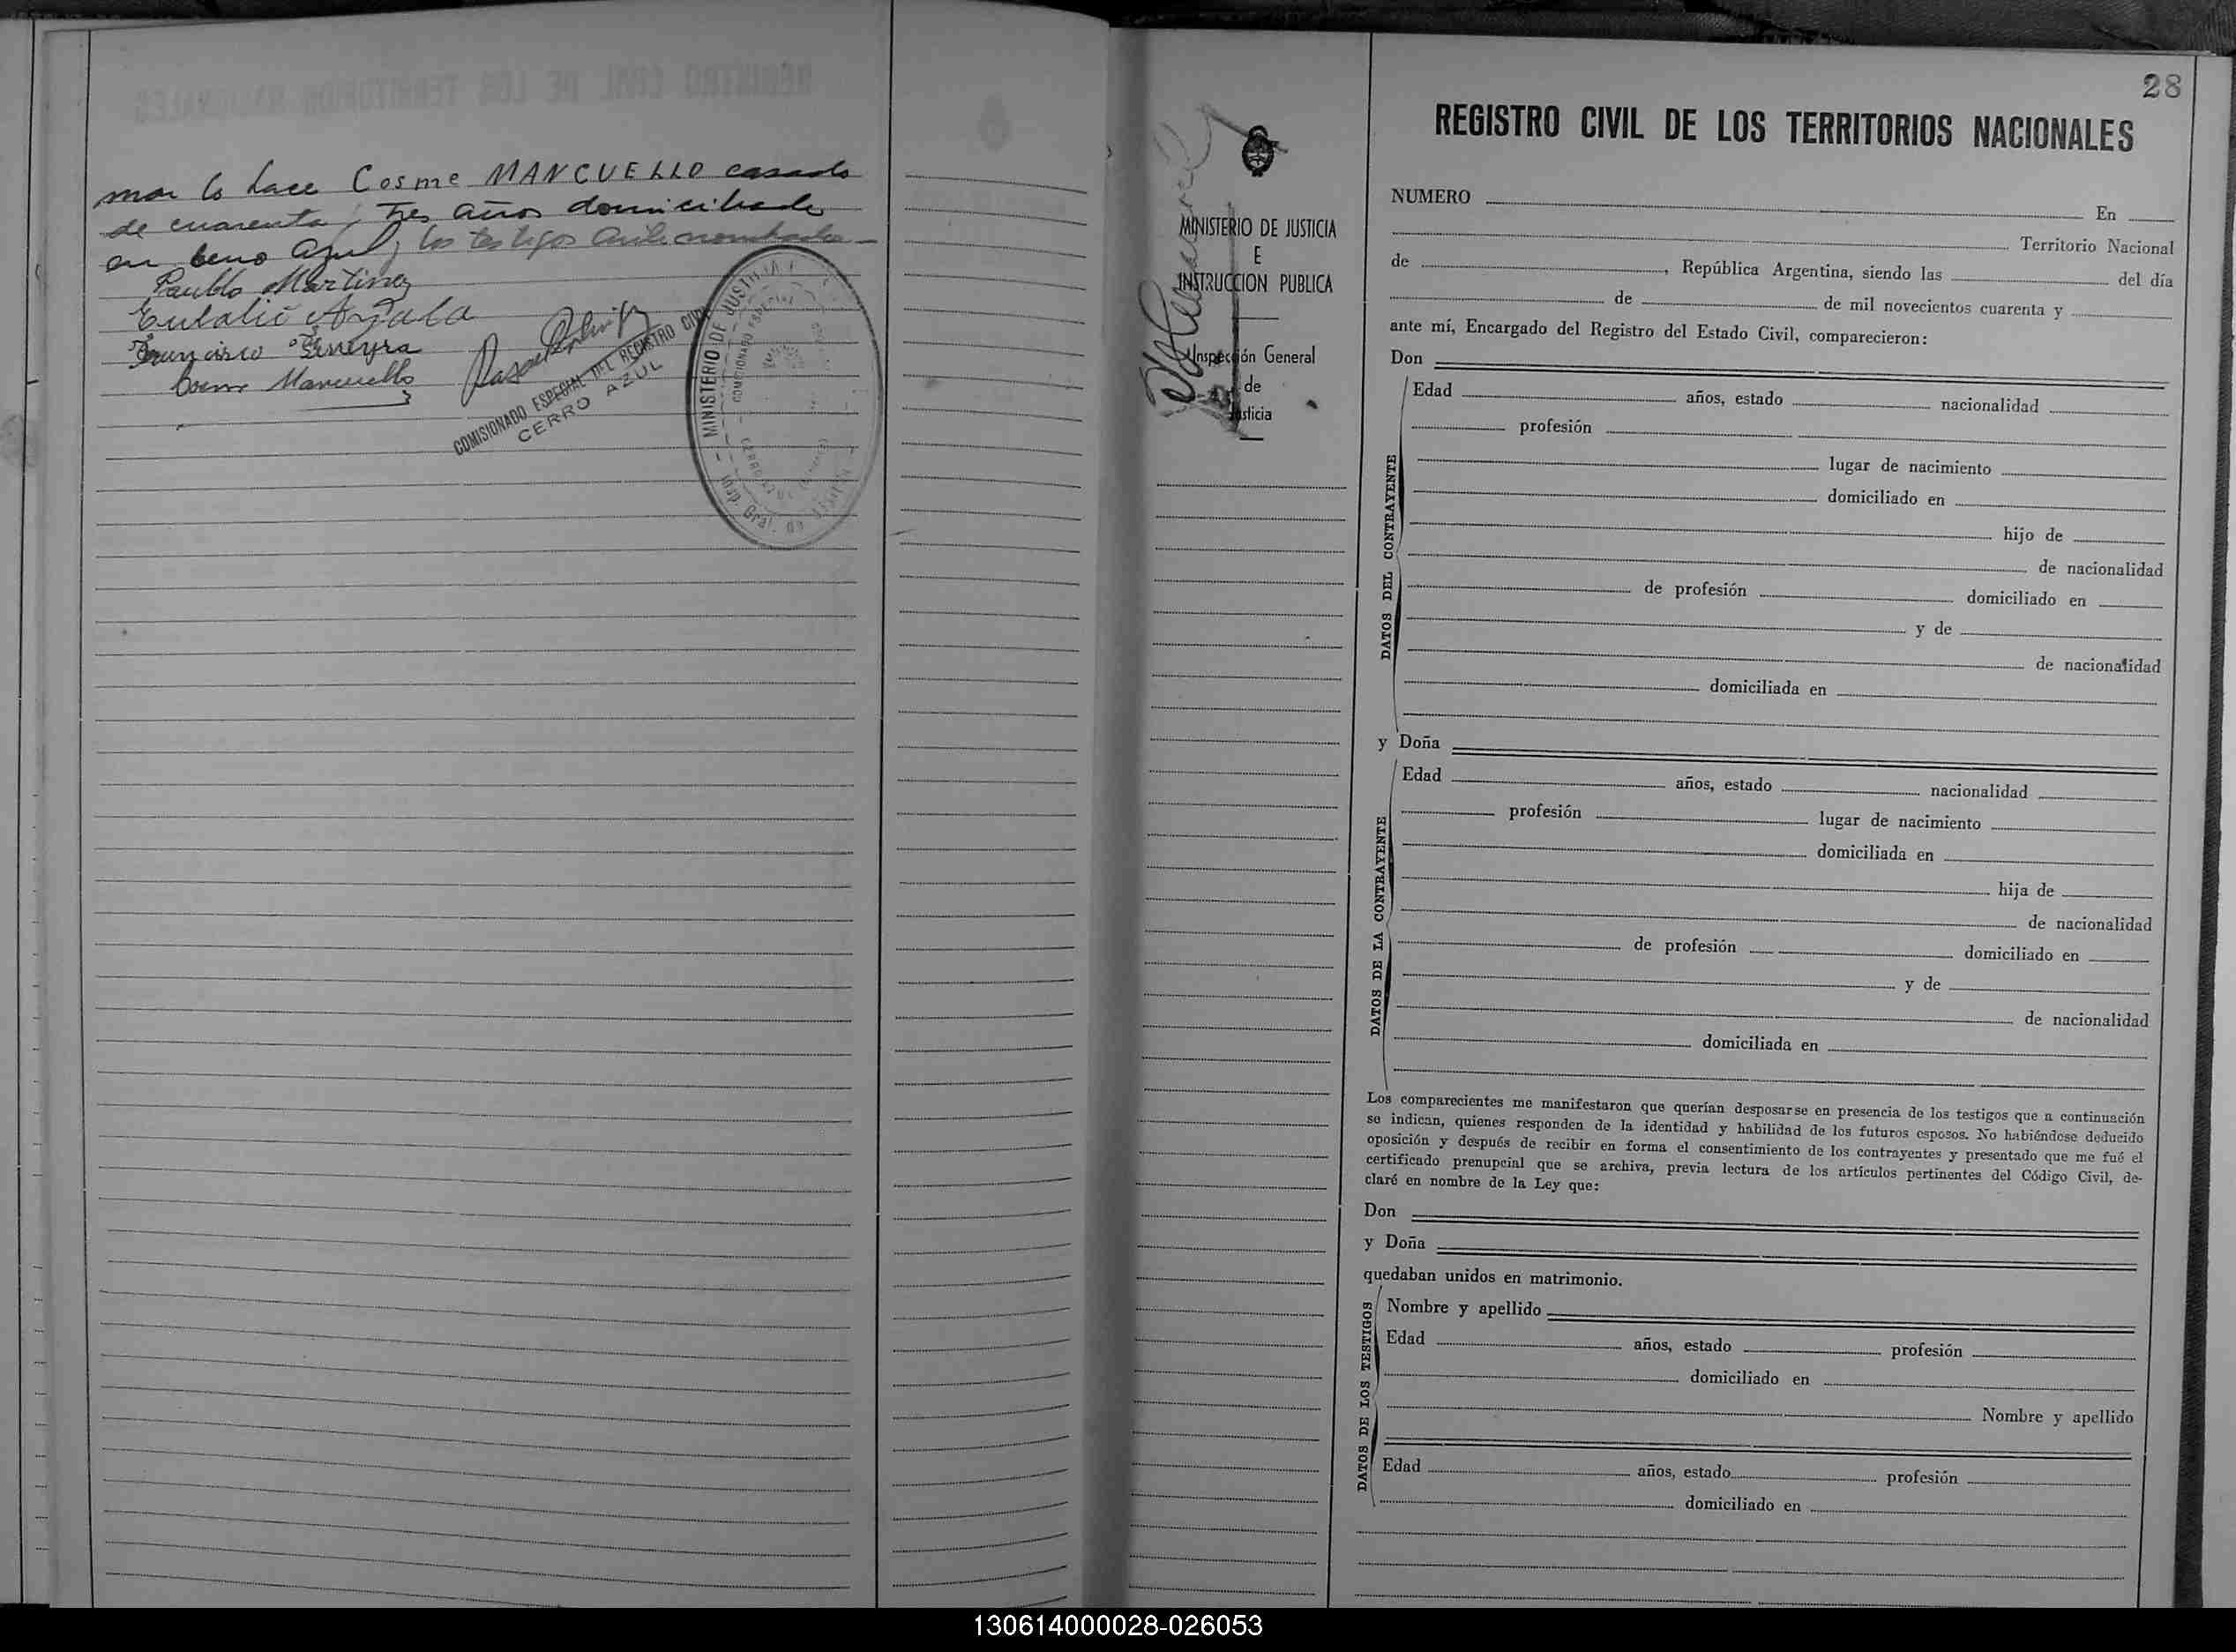 mar lo hace Cosme MANCUELLO casado
de cuarenta y tres años domiciliado
en Cerro Azul y los testigos
Paublo Martinez
Eulalio Ayala
Francisco
Cosme Mancuello
COMISIONADO ESPECIAL DEL REGISTRO CIVIL
CERRO AZUL
MINISTERIO DE JUSTICIA
Insp. Gral. de Justicia
28
MINISTERIO DE JUSTICIA
E
INSTRUCCION PUBLICA
Inspección General
de
Justicia
REGISTRO CIVIL DE LOS TERRITORIOS NACIONALES
NUMERO En
Territorio Nacional
de , República Argentina, siendo las del día
de de mil novecientos cuarenta y
ante mí, Encargado del Registro del Estado Civil, comparecieron:
Don
DATOS DEL CONTRAYENTE
Edad años, estado nacionalidad
profesión
lugar de nacimiento
domiciliado en
hijo de
de nacionalidad
de profesión domiciliado en
y de
de nacionalidad
domiciliada en
y Doña
DATOS DE LA CONTRAYENTE
Edad años, estado nacionalidad
profesión lugar de nacimiento
domiciliada en
hija de
de nacionalidad
de profesión domiciliado en
y de
de nacionalidad
domiciliada en
Los comparecientes me manifestaron que querían desposarse en presencia de los testigos que a continuación
se indican, quienes responden de la identidad y habilidad de los futuros esposos. No habiéndose deducido
oposición y después de recibir en forma el consentimiento de los contrayentes y presentado que me fué el
certificado prenupcial que se archiva, previa lectura de los artículos pertinentes del Código Civil, de-
claré en nombre de la Ley que:
Don
y Doña
quedaban unidos en matrimonio.
DATOS DE LOS TESTIGOS
Nombre y apellido
Edad años, estado profesión
domiciliado en
Nombre y apellido
Edad años, estado profesión
domiciliado en
130614000028-026053